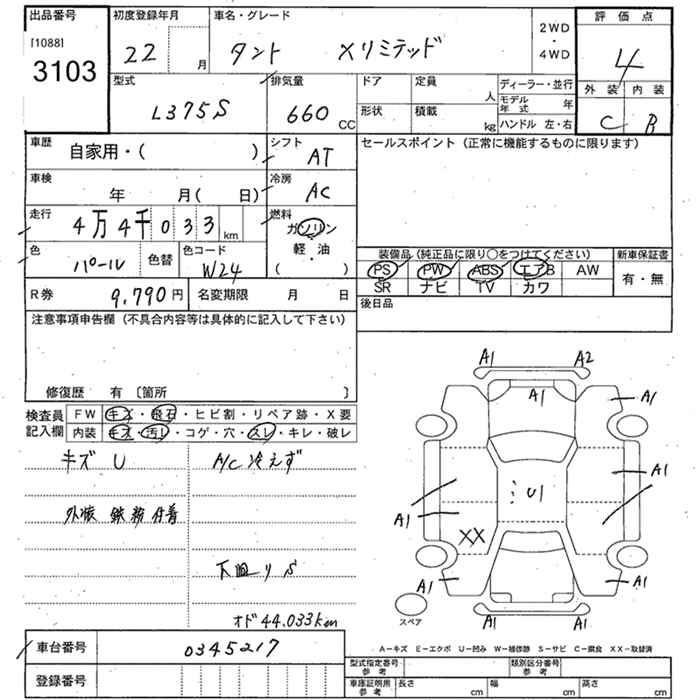 出品番号 初度登録年月 車名・グレード 2WD 評価点
[1088] 22 月 タント Xリミテッド ・ 4
3103 4WD
型式 排気量 ドア 定員 人 ディーラー・並行 外装 内装
L375S 660 CC 形状 積載 kg モデル年式 年 C B
ハンドル 左・右
車歴 自家用・( ) シフト AT セールスポイント (正常に機能するものに限ります)
車検 年 月( 日) 冷房 AC
走行 4万4千033 km 燃料 ガソリン
軽・油
( )
色 パール 色替 色コード W24 装備品 (純正品に限り○をつけてください) 新車保証書
PS PW ABS エアB AW 有・無
SR ナビ TV カワ
R券 9,790円 名変期限 月 日 後日品
注意事項申告欄 (不具合内容等は具体的に記入して下さい)
修復歴 有 〔箇所 〕
検査員 FW キズ・飛石・ヒビ割・リペア跡・X要
記入欄 内装 キズ・汚レ・コゲ・穴・スレ・キレ・破レ
キズ U A/C 冷えず
外装 鉄粉付着
下皿リS
オド 44.033km
A1 A2
A1 A1
A1
U1
A1
XX
A1 A1
スペア A1 A1
車台番号 0345217 A-キズ E-エクボ U-凹み W-補修跡 S-サビ C-腐食 XX-取替済
登録番号 型式指定番号 参考 類別区分番号 参考
車庫証明用 参考 長さ cm 幅 cm 高さ cm